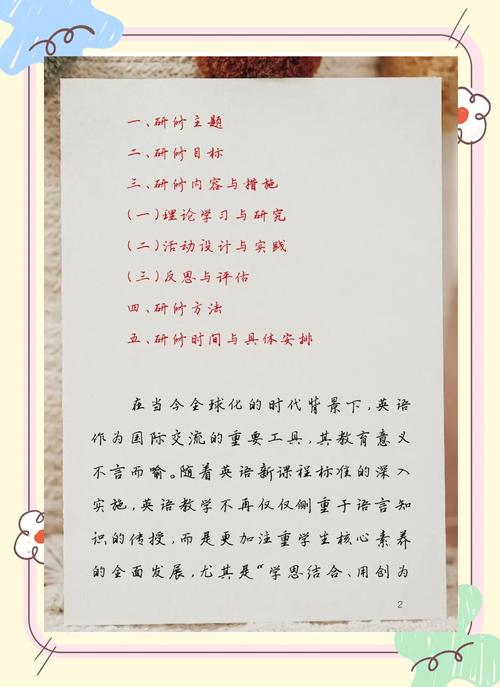 一、研修主题
二、研修目标
三、研修内容与措施
(一)理论学习与研究
(二)活动设计与实践
(三)反思与评估
四、研修方法
五、研修时间与具体安排
在当今全球化的时代背景下，英语
作为国际交流的重要工具，其教育意义
不言而喻。随着英语新课程标准的深入
实施，英语教学不再仅仅侧重于语言知
识的传授，而是更加注重学生核心素养
的全面发展，尤其是“学思结合、用创为
2